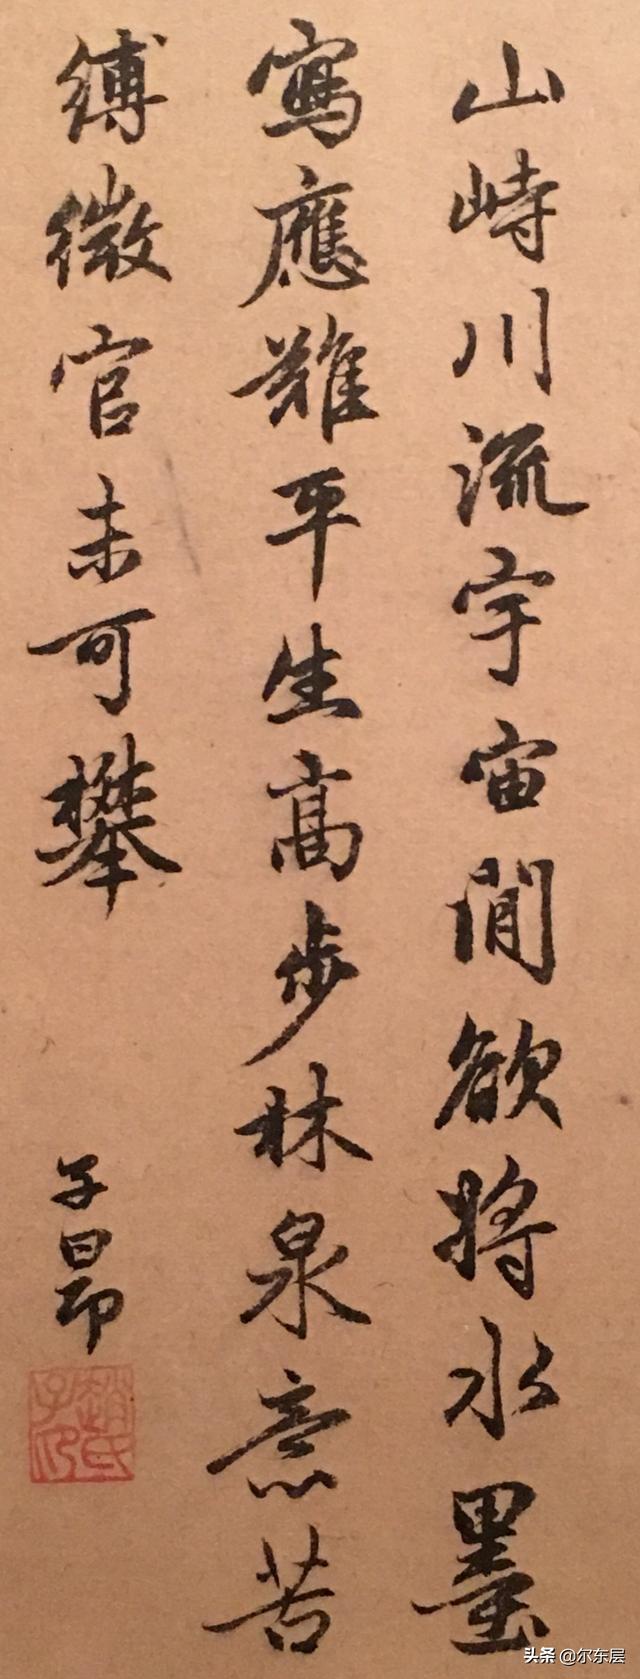 山峙川流宇宙間欲將水墨
寫應難平生高步林泉意苦
縛微官未可攀
子昂
趙氏子印
头条 @尔东层